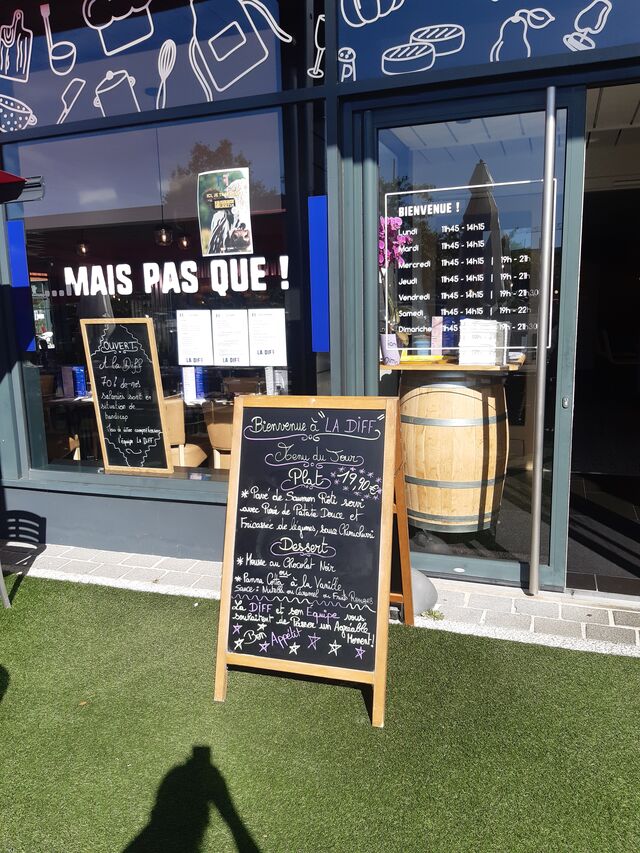 ...MAIS PAS QUE !
LA DIFF
LA DIFF
LA DIFF
OUVERT
à la Diff
70% de nos
salariés sont en
situation de
handicap
l'équipe LA DIFF
BIENVENUE !
Lundi 11h45 - 14h15
Mardi 11h45 - 14h15
Mercredi 11h45 - 14h15 | 19h - 21h
Jeudi 11h45 - 14h15 | 19h - 21h
Vendredi 11h45 - 14h15 | 19h - 22h
Samedi 11h45 - 14h15 | 19h - 22h
Dimanche 11h45 - 14h15 | 19h - 21h30
Bienvenue à "LA DIFF"
Menu du Jour
Plat 19,90€
* Pavé de Saumon Rôti servi
avec Purée de Patate Douce et
Fricassée de légumes, sauce Chimichurri
Dessert
* Mousse au Chocolat Noir
ou
* Panna Cotta à la Vanille
Sauce : Nutella ou Caramel ou Fruits Rouges
La DIFF et son Equipe vous
souhaitent de Passer un Agréable
Moment !
Bon Appétit